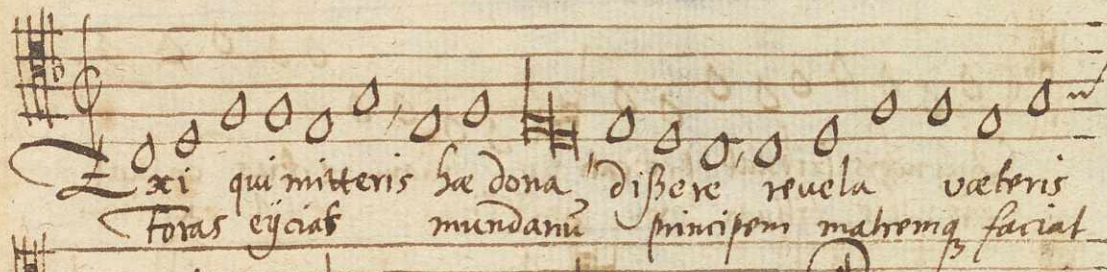 Exi qui mitteris hæ dona dißere revela væteris
foras eÿcias mundanũ principem matremqꝫ faciat